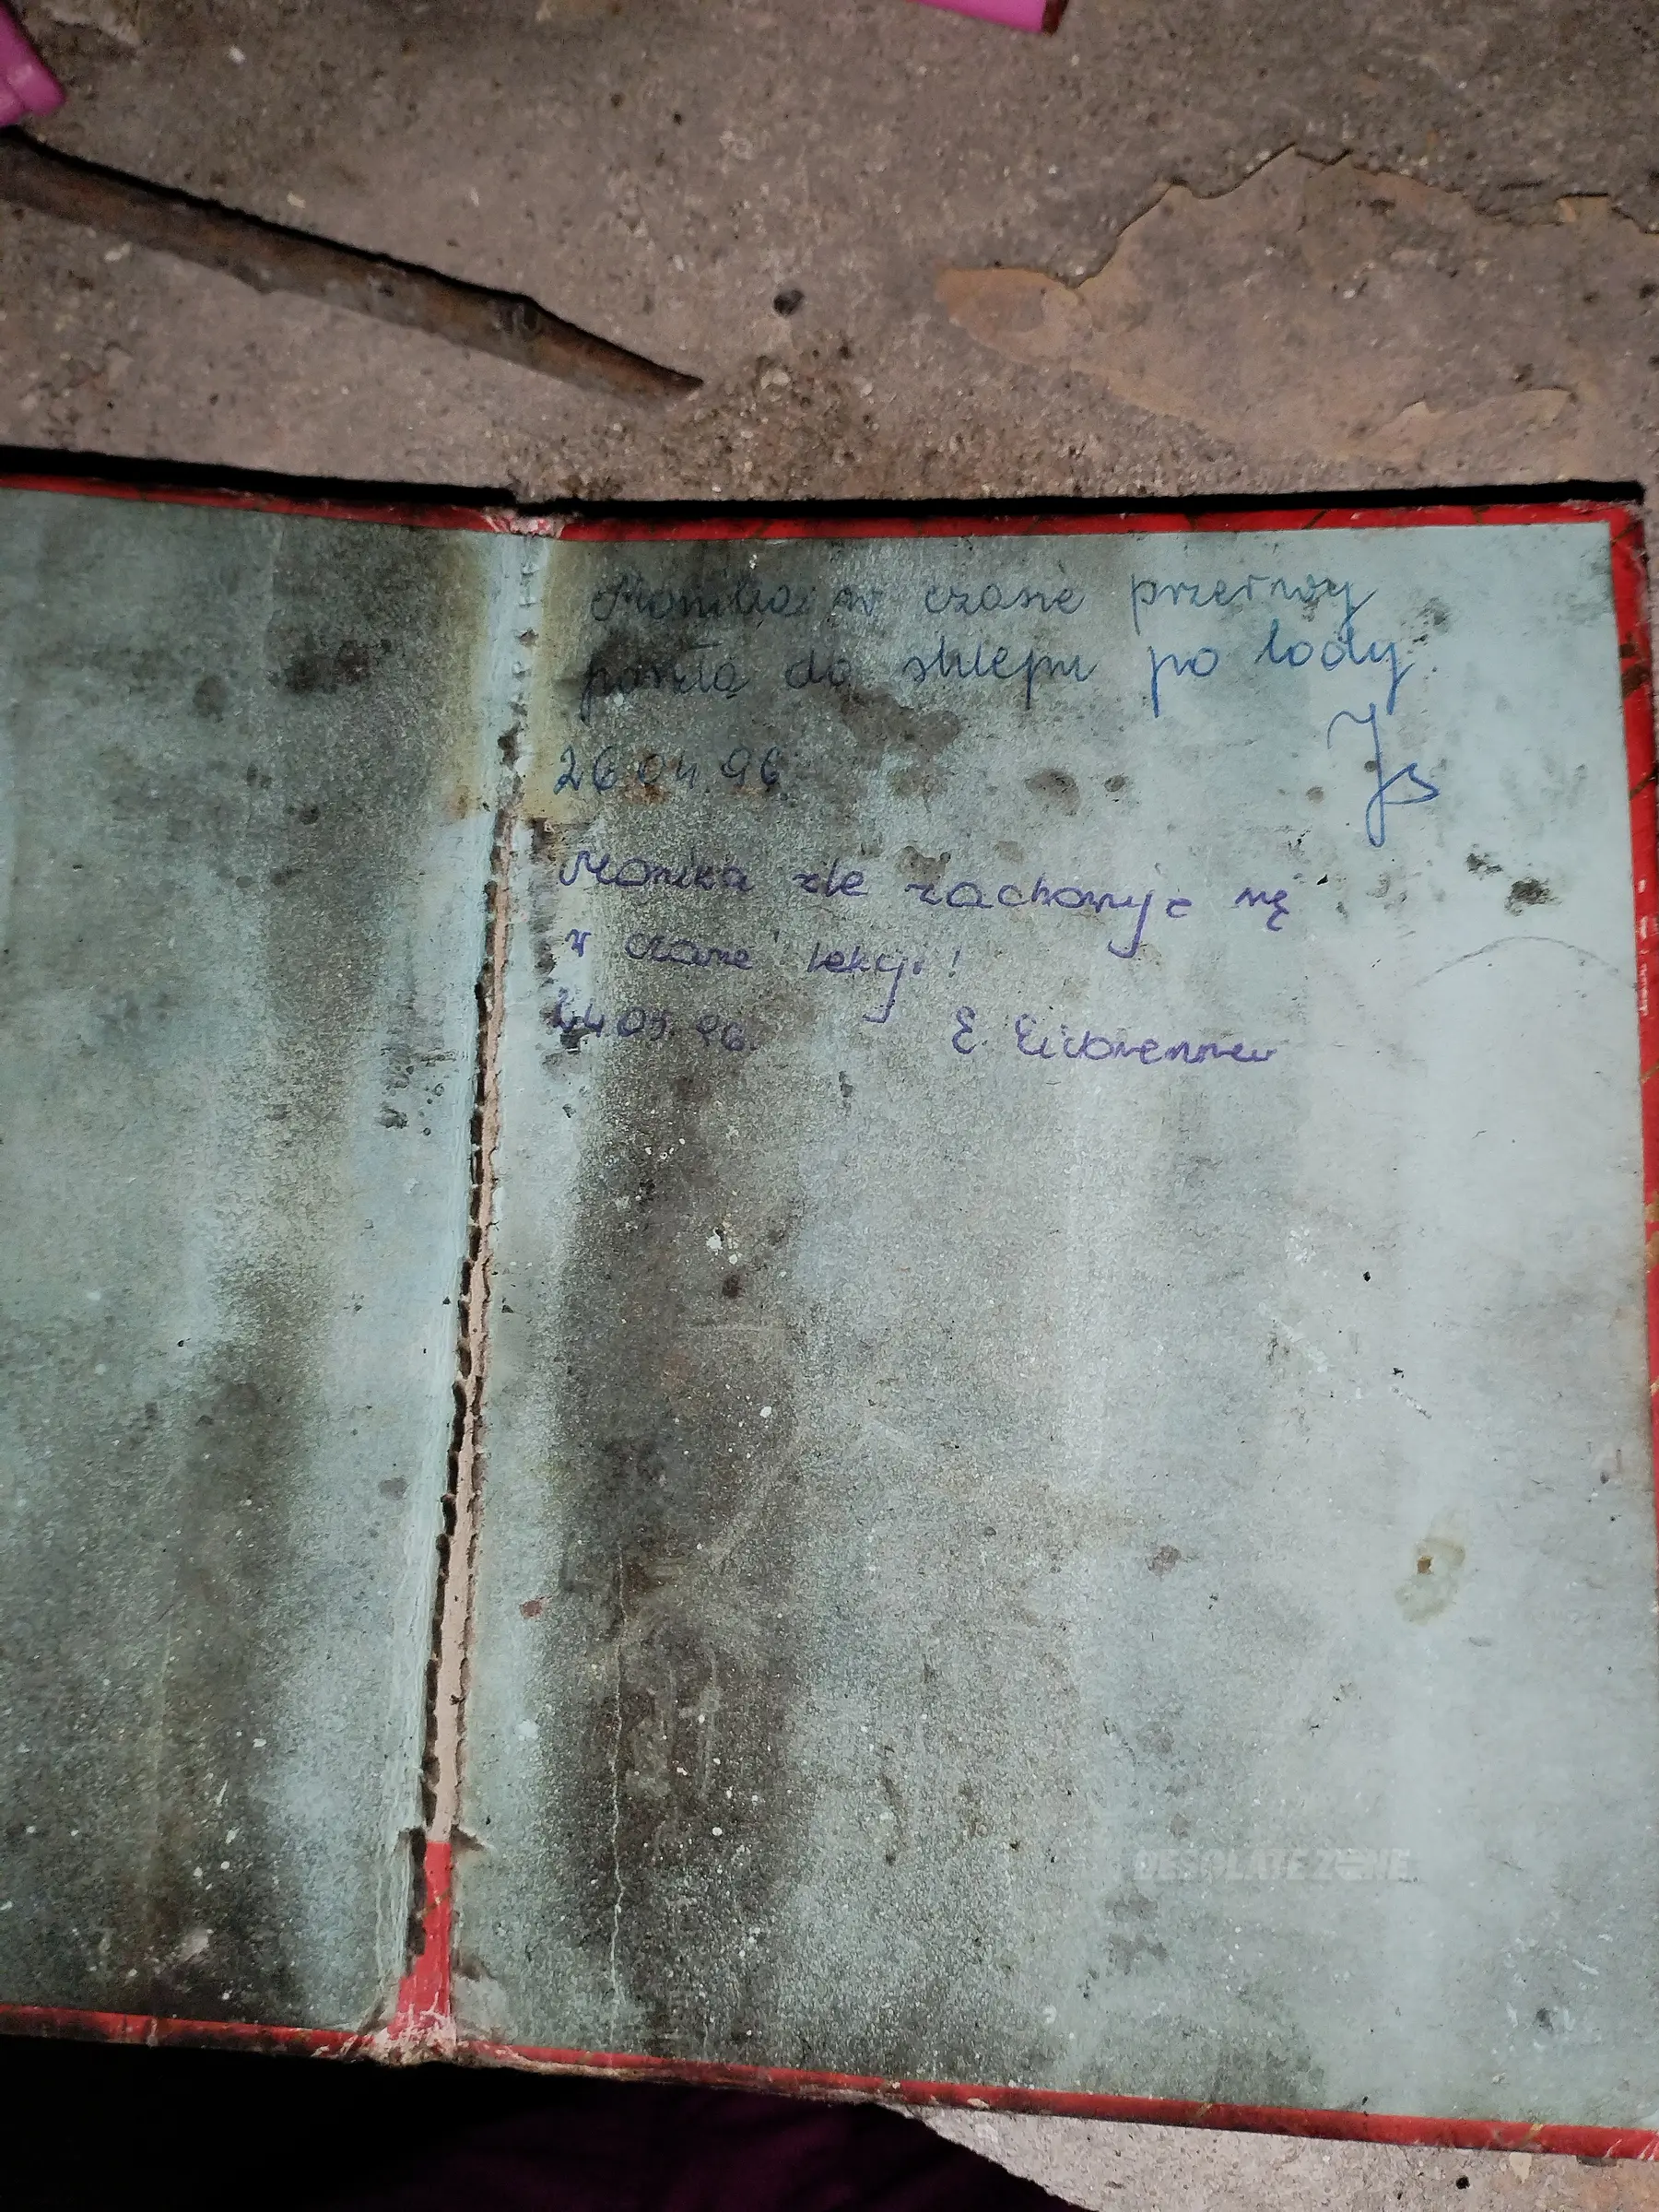 Monika w czasie przerwy
poszła do sklepu po lody.
Js
26.04.96
Monika źle zachowuje się
w czasie lekcji!
.96. E.
DESOLATE ZONE